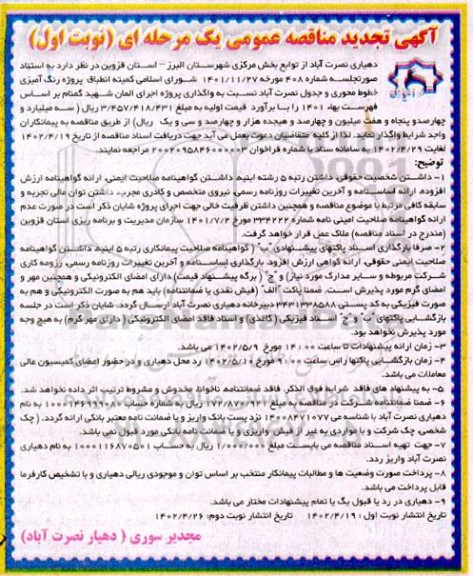 آگهی تجدید مناقصه عمومی یک مرحله ای (نوبت اول)
دهیاری نصرت آباد از توابع بخش مرکزی شهرستان البرز - استان قزوین در نظر دارد به استناد
صورتجلسه شماره ۴۰۸ مورخه ۱۴۰۱/۱۱/۲۷ شورای اسلامی کمیته انطباق پروژه رنگ آمیزی
خطوط محوری و جدول نصرت آباد نسبت به واگذاری پروژه اجرای المان شهید گمنام بر اساس
فهرست بهاء ۱۴۰۱ را با برآورد قیمت اولیه به مبلغ ۳/۴۵۷/۴۱۸/۴۳۱ ریال (سه میلیارد و
چهارصدو پنجاه و هفت میلیون و چهارصد و هیجده هزار و چهارصد و سی و یک ریال) از طریق مناقصه به پیمانکاران
واجد شرایط واگذار نماید. لذا از کلیه متقاضیان دعوت بعمل می آید جهت دریافت اسناد مناقصه از تاریخ ۱۴۰۲/۴/۱۹
لغایت ۱۴۰۲/۴/۲۹ به سامانه ستاد با شماره فراخوان مراجعه نمایند.
توضیح:
۱- داشتن شخصیت حقوقی، داشتن رتبه ۵ رشته ابنیه، داشتن گواهینامه صلاحیت ایمنی، ارائه گواهینامه ارزش
افزوده، ارائه اساسنامه و آخرین تغییرات روزنامه رسمی، نیروی متخصص و کادری مجرب، داشتن توان مالی تجربه و
سابقه کافی مرتبط با موضوع مناقصه و همچنین داشتن ظرفیت خالی جهت اجرای پروژه شایان ذکر است در صورت عدم
ارائه گواهینامه صلاحیت ایمنی نامه شماره ۳۳۴۲۲۲ مورخ ۱۴۰۱/۷/۲ سازمان مدیریت و برنامه ریزی استان قزوین
(مندرج در اسناد مناقصه) ملاک عمل قرار خواهد گرفت.
۲- صرفا بارگذاری اسناد پاکتهای پیشنهادی "ب" (گواهینامه صلاحیت پیمانکاری رتبه ۵ ابنیه، داشتن گواهینامه
صلاحیت ایمنی حقوقی، ارائه گواهی ارزش افزود، بارگذاری اساسنامه و آخرین تغییرات روزنامه رسمی، رزومه کاری
شرکت مربوطه و سایر مدارک مورد نیاز) و "ج" (برگه پیشنهاد قیمت) دارای امضای الکترونیکی و همچنین مهر و
امضای گرم مورد پذیرش است. ضمنا پاکت "الف" (فیش نقدی یا ضمانتنامه) باید هم به صورت الکترونیکی و هم به
صورت فیزیکی به کد پستی ۳۴۳۱۳۳۸۵۸۸ دبیرخانه دهیاری نصرت آباد ارسال گردد. شایان ذکر است در جلسه
بازگشایی پاکتهای "ب" و "ج" اسناد فیزیکی (کاغذی) و اسناد فاقد امضای الکترونیکی (دارای مهر گرم) به هیچ وجه
مورد پذیرش نخواهد بود.
۳- زمان ارائه پیشنهادات تا ساعت ۱۴:۰۰ مورخ ۱۴۰۲/۵/۹ می باشد.
۴- زمان بازگشایی پاکتها راس ساعت ۹:۰۰ مورخ ۱۴۰۲/۵/۱۰ در محل دهیاری و در حضور امضای کمیسیون عالی
معاملات می باشد.
۵- به پیشنهاد های فاقد شرایط فوق الذکر، فاقد ضمانتنامه، ناخوانا، مخدوش و مشروط ترتیب اثر داده نخواهد شد.
۶- ضمنا ضمانتنامه شرکت در مناقصه به مبلغ ریال به شماره حساب به نام
دهیاری نصرت آباد با شناسه می ۱۴۰۰۸۴۷۱۰۷۷ نزد پست بانک واریز و یا ضمانت نامه معتبر بانکی ارائه گردد. (چک
شخصی، چک شرکت و یا مواردی به غیر از فیش واریزی و یا ضمانت نامه بانکی مورد قبول نمی باشد.
۷- جهت تهیه اسناد مناقصه می بایست مبلغ ۱/۰۰۰/۰۰۰ ریال به حساب به نام دهیاری
نصرت آباد واریز گردد.
۸- پرداخت صورت وضعیت ها و مطالبات پیمانکار منتخب بر اساس توان و موجودی ریالی دهیاری و با تشخیص کارفرما
قابل پرداخت می باشد.
۹- دهیاری در رد یا قبول یک یا تمام پیشنهادات مختار می باشد.
تاریخ انتشار نوبت اول : ۱۴۰۲/۴/۱۹ تاریخ انتشار نوبت دوم: ۱۴۰۲/۴/۲۶
مجدیر سوری (دهیار نصرت آباد)